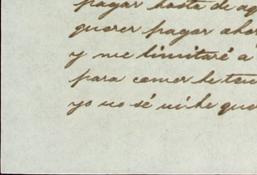 pagar hasta de ag
querer pagar ahor
y me limitaré a
para comer he ten
yo no sé ni he que